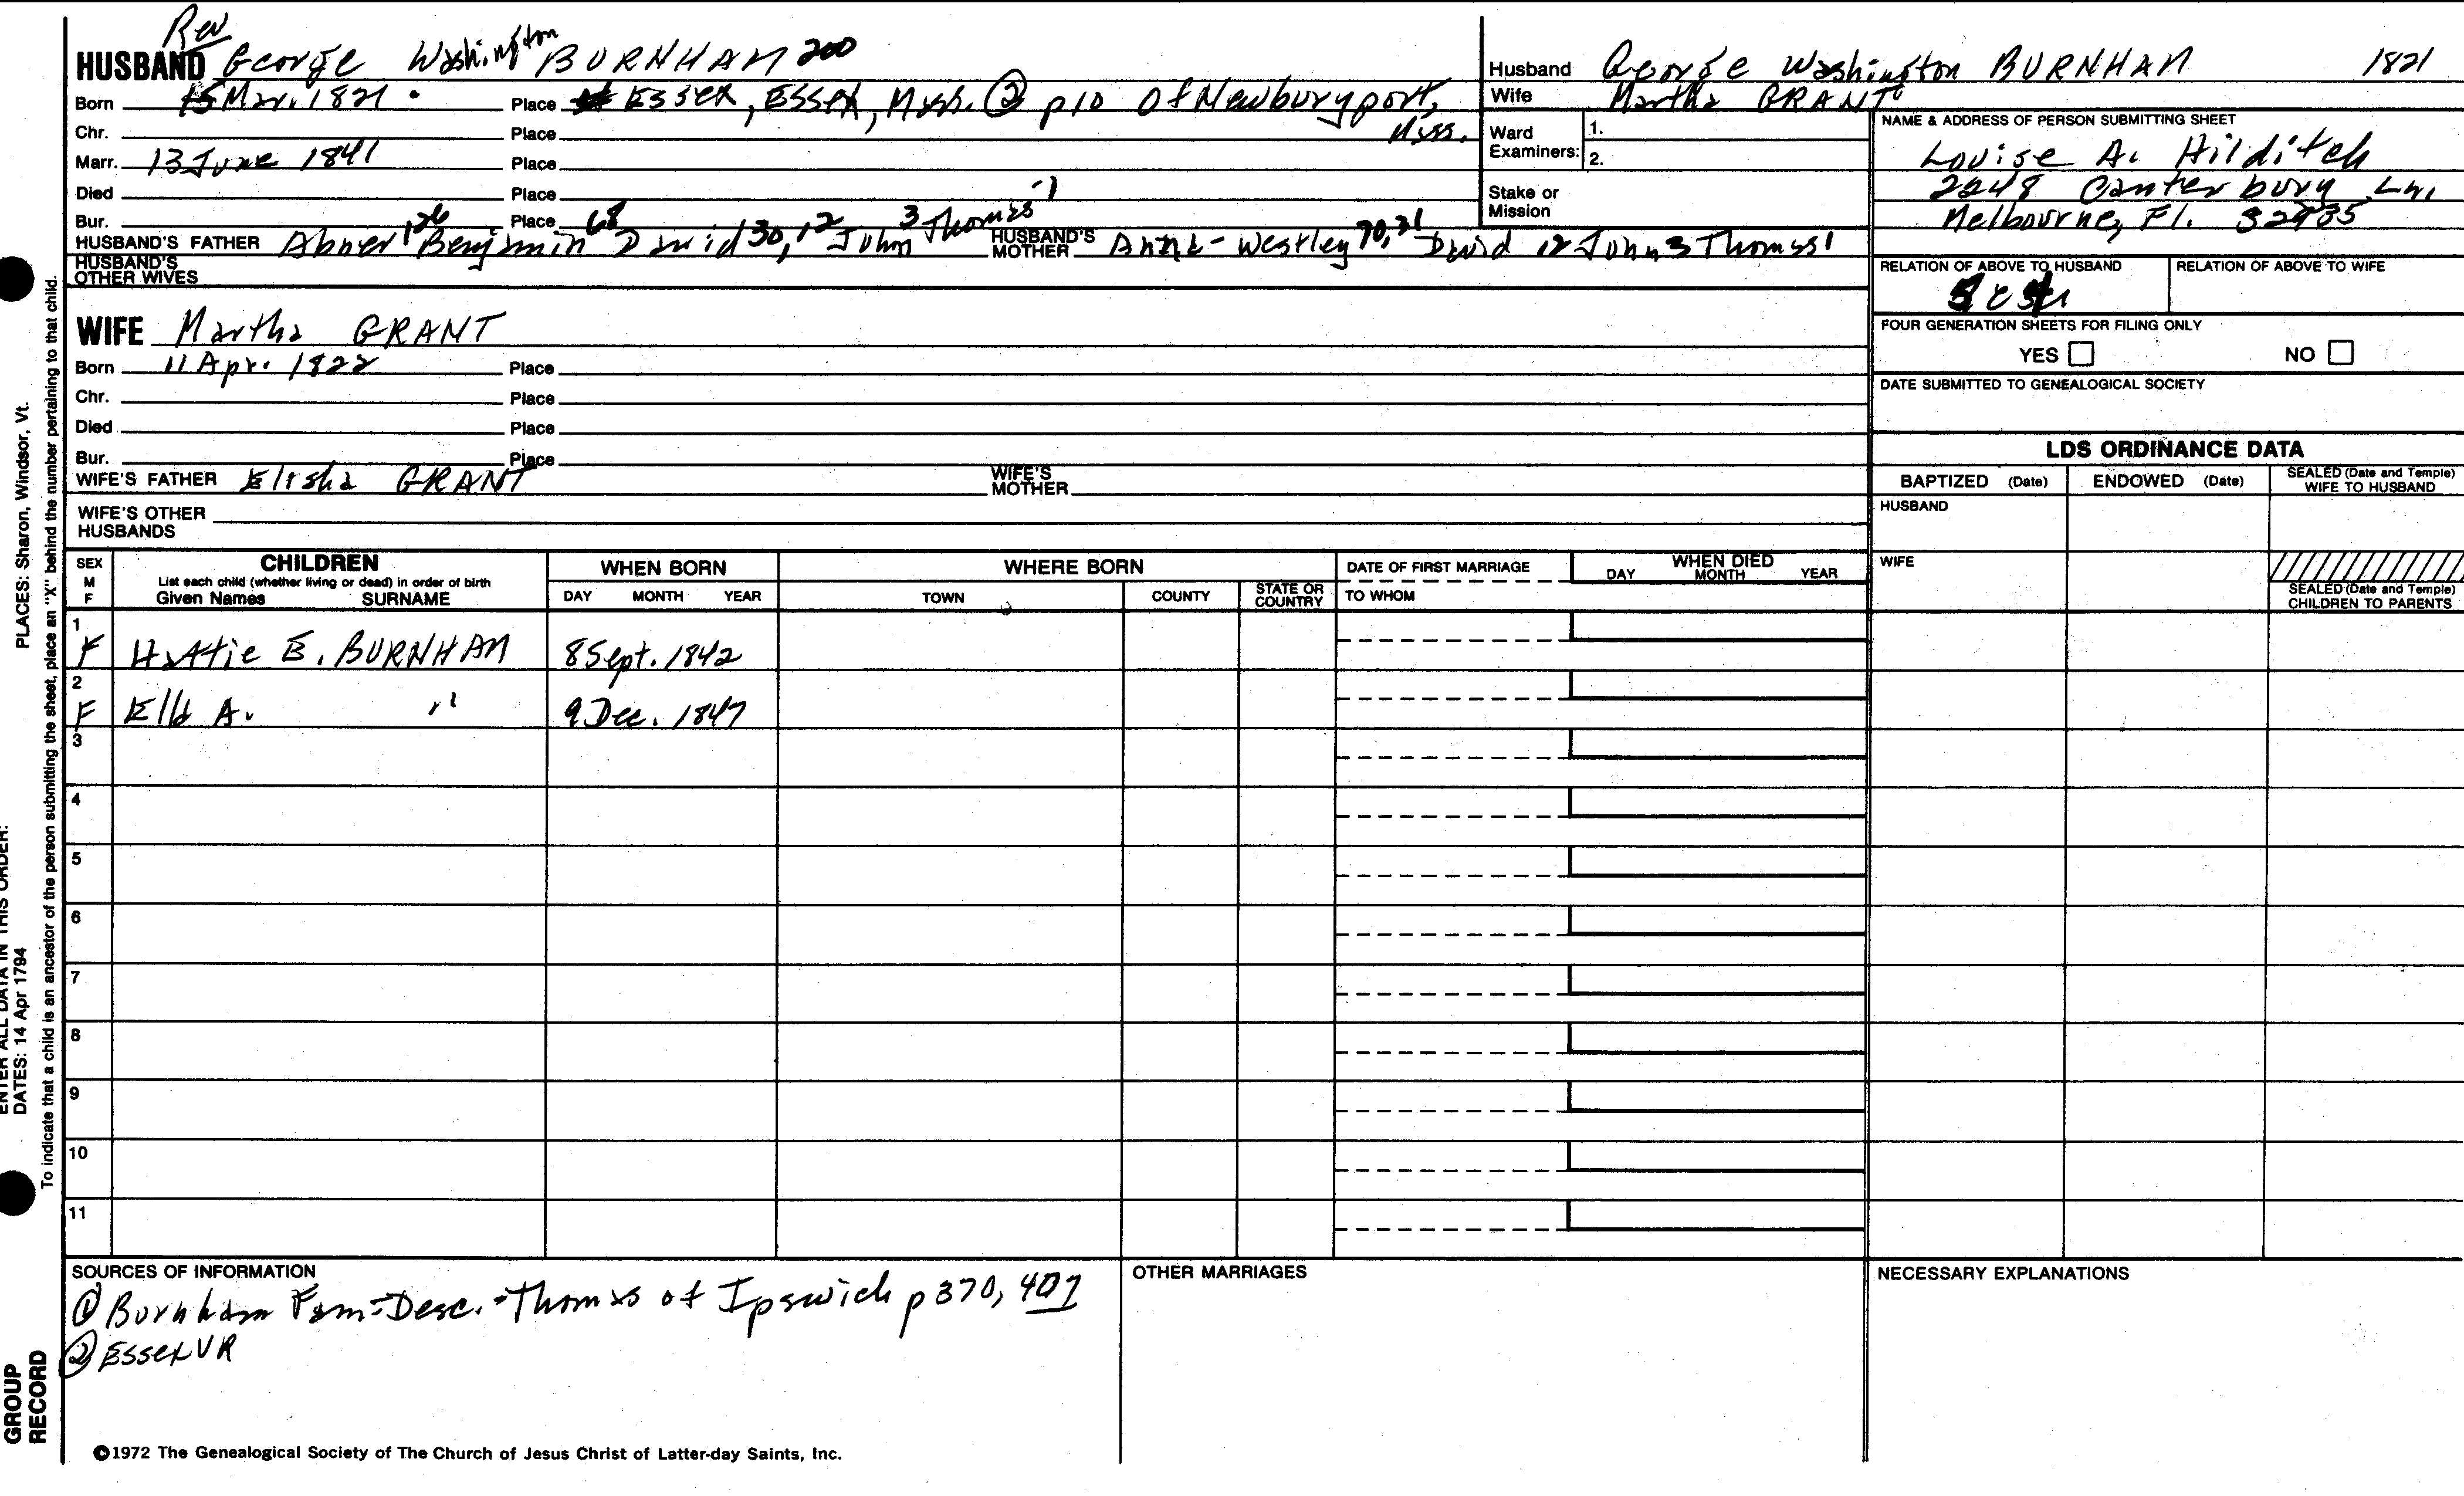 Rev
HUSBAND George Washington BURNHAM 200
Born 15 Mar. 1821 Place Essex, Essex, Mass. ② p10 Of Newburyport,
Mass.
Chr. Place
Marr. 13 June 1841 Place
Died Place
Bur. Place
HUSBAND'S FATHER Abner 126 Benjamin 68 David 30, 12 John 3 Thomas 1 HUSBAND'S MOTHER Anna - Westley 70, 31 David 12 John 3 Thomas 1
HUSBAND'S OTHER WIVES
WIFE Martha GRANT
Born 11 Apr. 1822 Place
Chr. Place
Died Place
Bur. Place
WIFE'S FATHER Elisha GRANT WIFE'S MOTHER
WIFE'S OTHER HUSBANDS
Husband George Washington BURNHAM 1821
Wife Martha GRANT
Ward Examiners: 1.
2.
Stake or Mission
NAME & ADDRESS OF PERSON SUBMITTING SHEET
Louise A. Hilditch
2248 Canterbury Ln.
Melbourne, Fl. 32935
RELATION OF ABOVE TO HUSBAND RELATION OF ABOVE TO WIFE
FOUR GENERATION SHEETS FOR FILING ONLY
YES NO
DATE SUBMITTED TO GENEALOGICAL SOCIETY
LDS ORDINANCE DATA
BAPTIZED (Date) ENDOWED (Date) SEALED (Date and Temple) WIFE TO HUSBAND
HUSBAND
WIFE
SEALED (Date and Temple) CHILDREN TO PARENTS
SEX M F CHILDREN WHEN BORN WHERE BORN DATE OF FIRST MARRIAGE WHEN DIED
List each child (whether living or dead) in order of birth
Given Names SURNAME DAY MONTH YEAR TOWN COUNTY STATE OR COUNTRY TO WHOM DAY MONTH YEAR
1 F Hattie E. BURNHAM 8 Sept. 1842
2 F Ella A. " 9 Dec. 1847
3
4
5
6
7
8
9
10
11
SOURCES OF INFORMATION
① Burnham Fam - Desc. - Thomas of Ipswich p 370, 407
② Essex VR
OTHER MARRIAGES
NECESSARY EXPLANATIONS
©1972 The Genealogical Society of The Church of Jesus Christ of Latter-day Saints, Inc.
PLACES: Sharon, Windsor, Vt.
To indicate that a child is an ancestor of the person submitting the sheet, place an "X" behind the number pertaining to that child.
ENTER ALL DATA IN THIS ORDER:
DATES: 14 Apr 1794
GROUP
RECORD